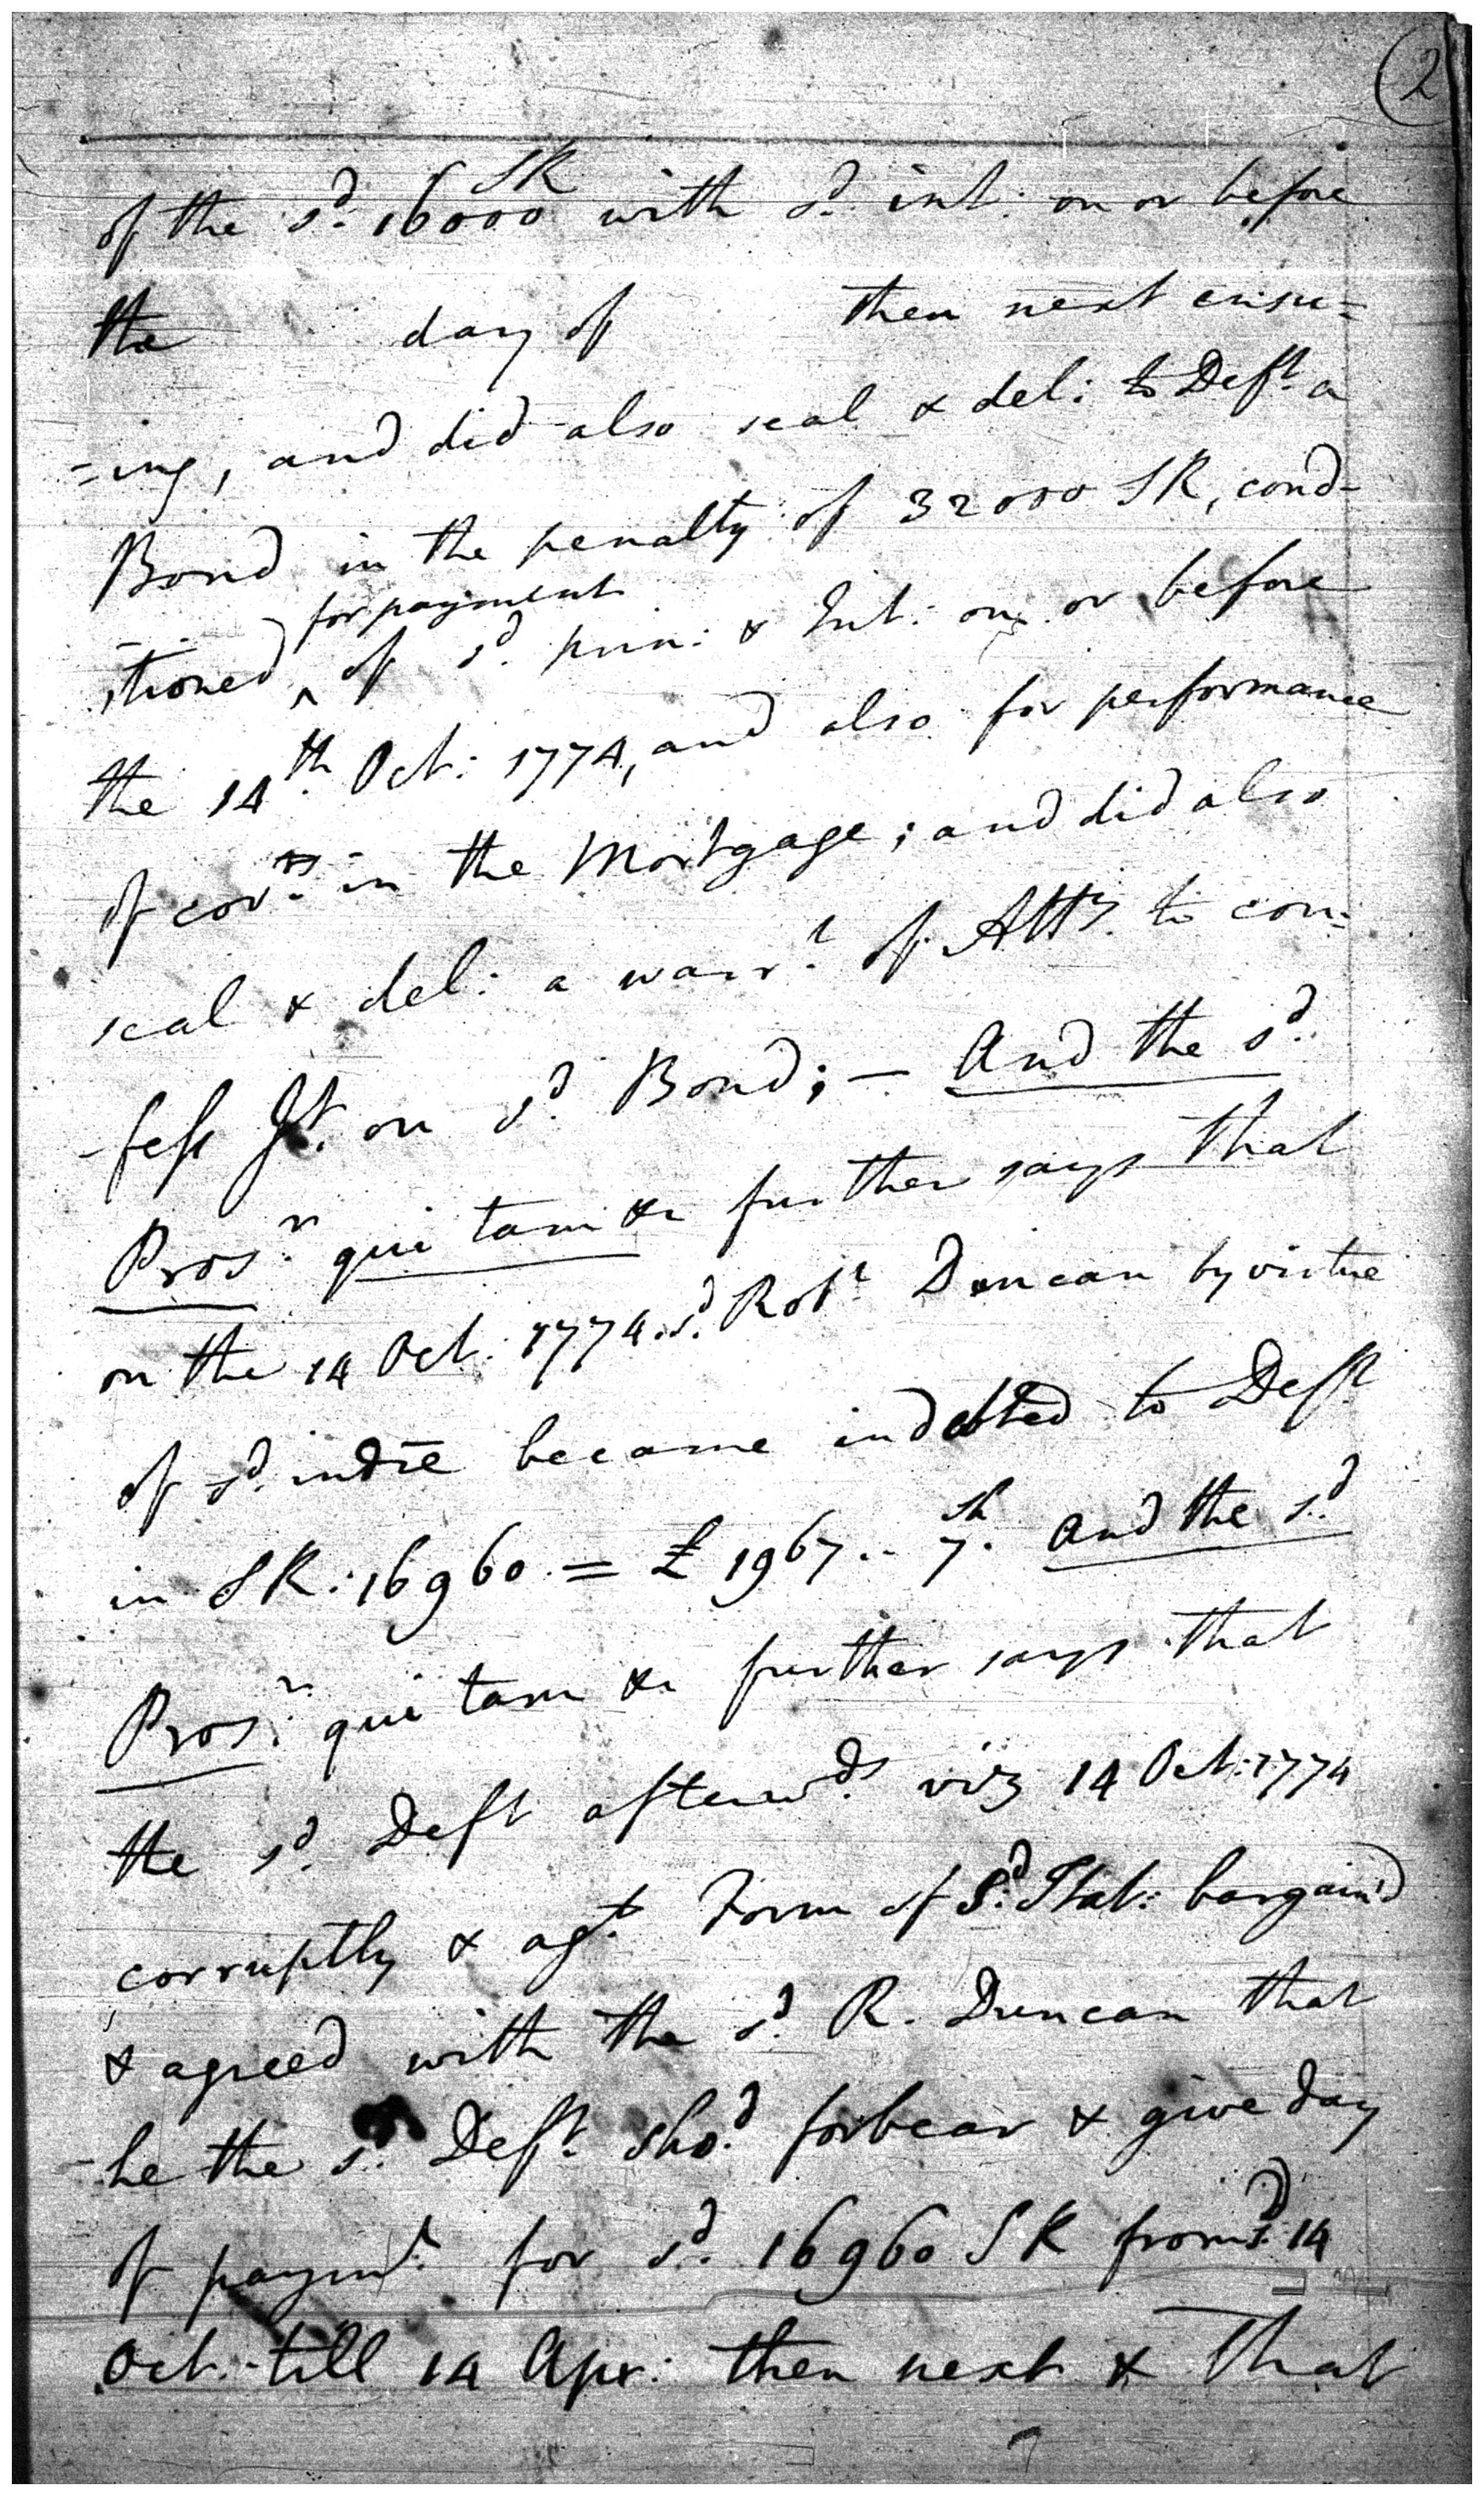 2
of the s.d 16000 SR with s.d int: on or before
the day of then next ensu=
=ing, and did also seal & del: to Deft. a
Bond in the penalty of 32000 SR, cond-
-tioned for payment of s.d prin: & Int: on or before
the 14th. Oct: 1774, and also for performance
of cov.ts in the Mortgage; and did also
seal & del: a warr.t of Att.y to con=
-fess Jt. on s.d Bond; — And the s.d
Pros.r qui tam &c further says that
on the 14 Oct: 1774. s.d Rob.t Duncan by virtue
of s.d indre became indebted to Deft
in SR: 16960 = £ 1967.. 7.sh And the s.d
Pros.r qui tam &c further says that
the s.d Deft afterw.ds viz 14 Oct: 1774
corruptly & ag.t Form of S.d Stat: bargain'd
& agreed with the s.d R. Duncan that
-he the s.d Deft. sho.d forbear & give day
of paym.t for s.d 16960 SR from s.d 14
Oct. till 14 Apr: then next & That